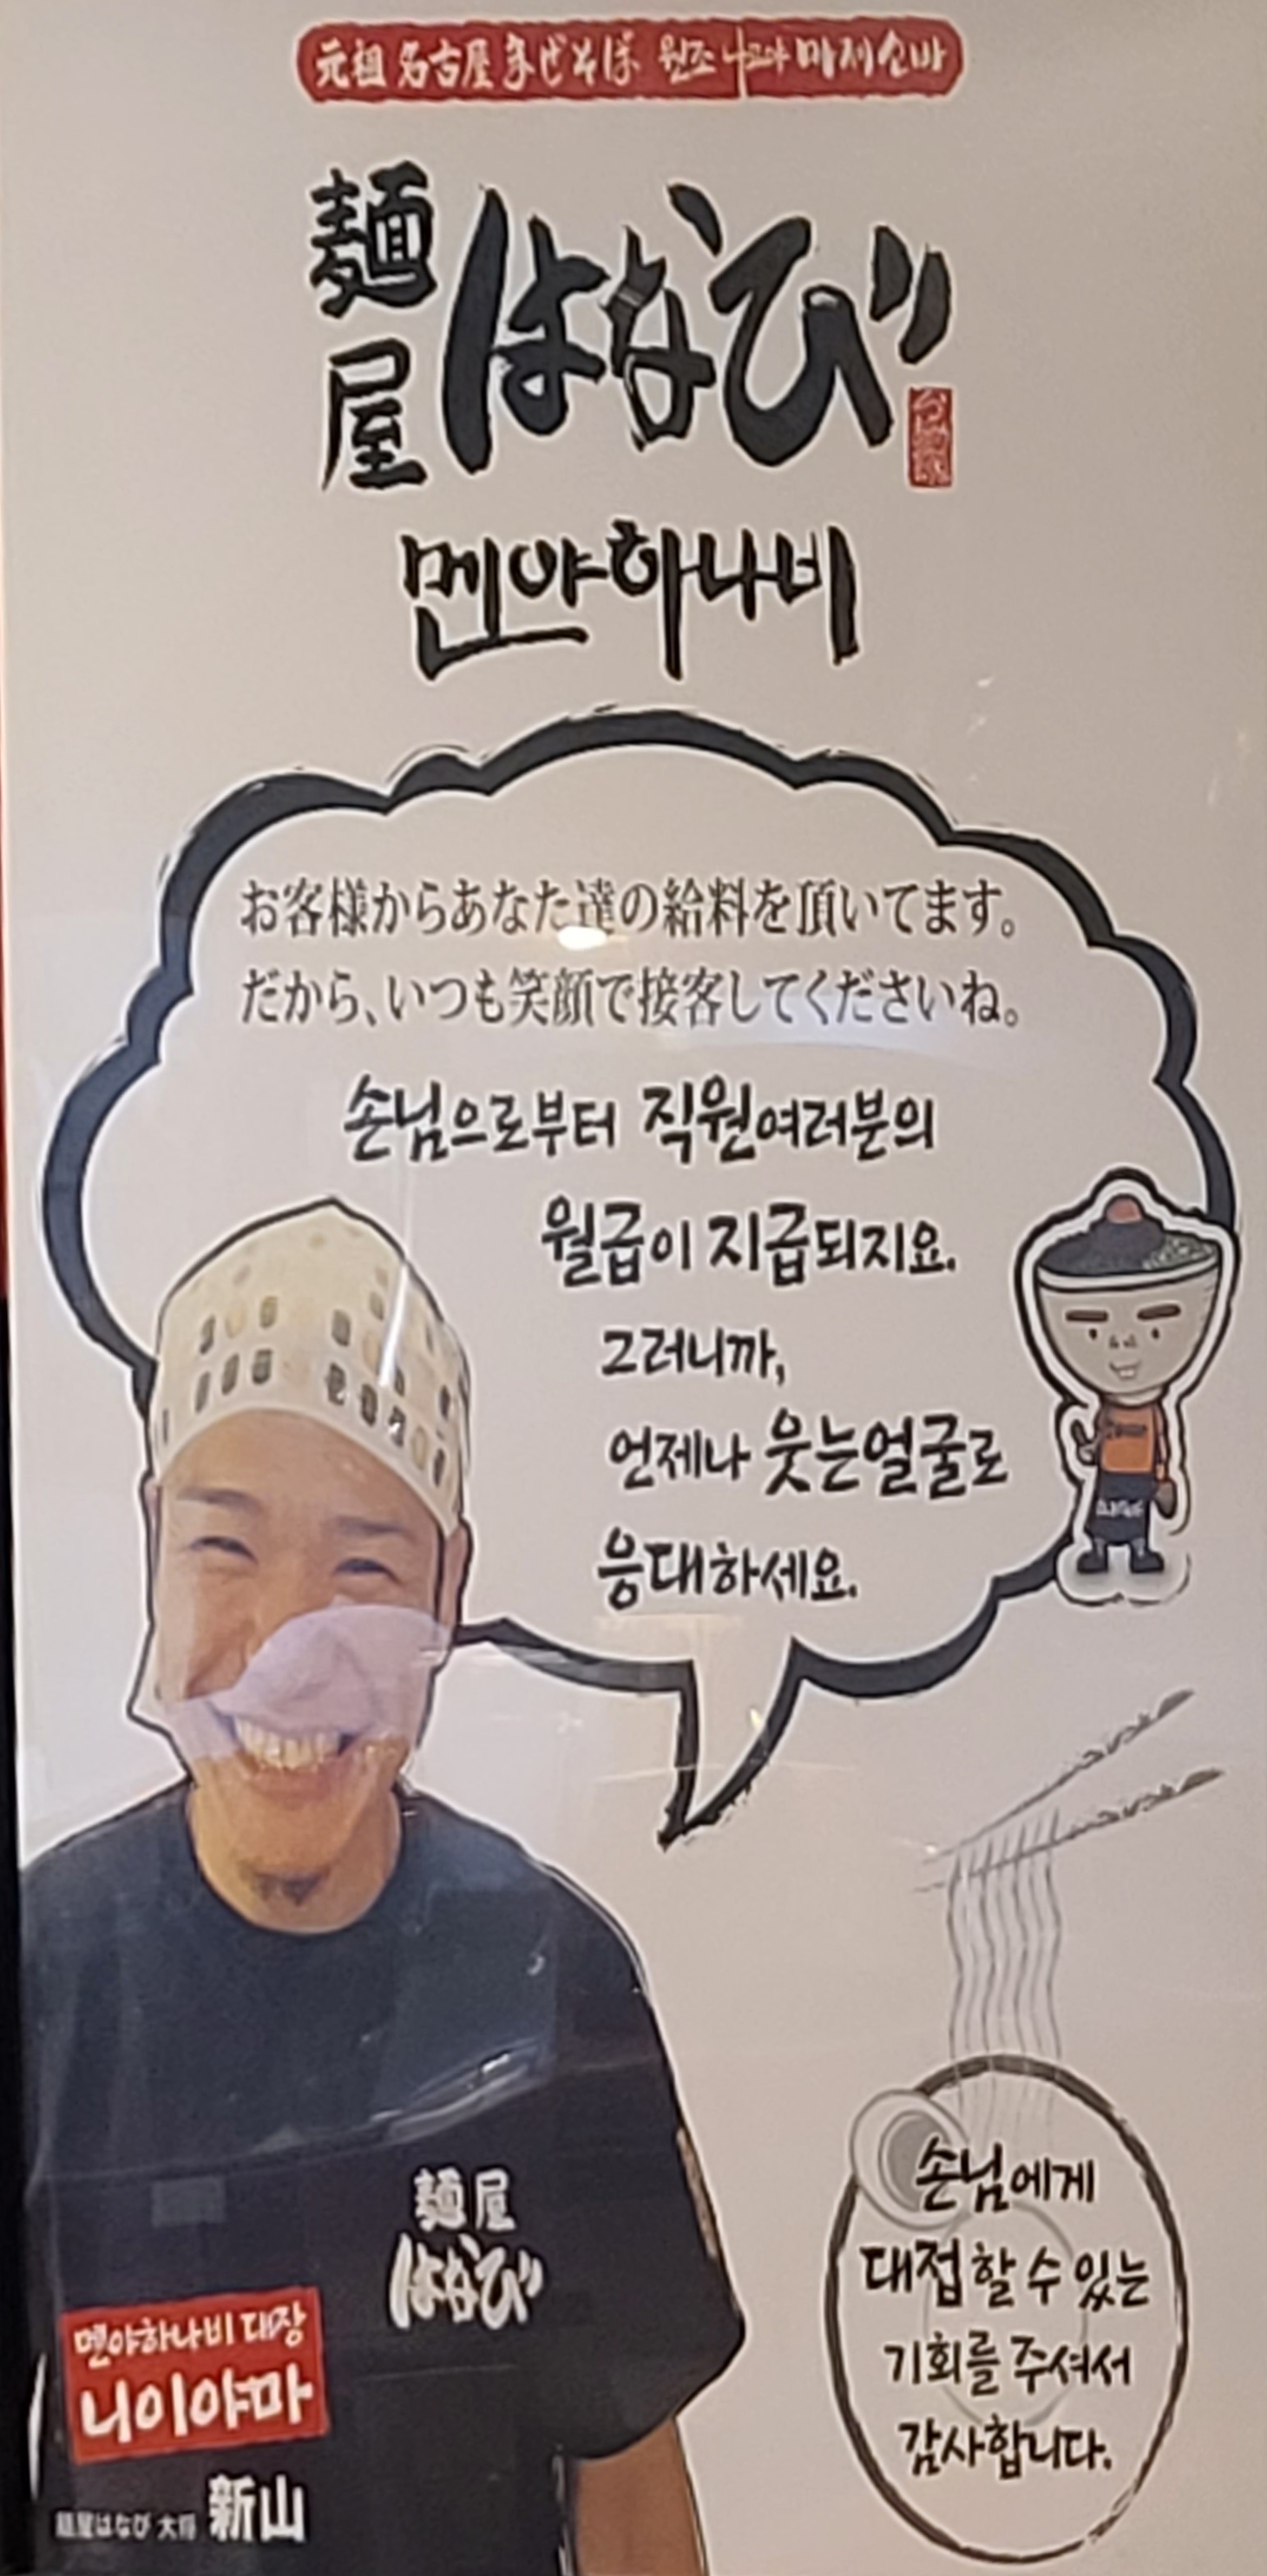 元祖 名古屋 まぜそば 원조 나고야 마제소바
麺屋 はなび
멘야하나비
お客様からあなた達の給料を頂いてます。
だから、いつも笑顔で接客してくださいね。
손님으로부터 직원여러분의
월급이 지급되지요.
그러니까,
언제나 웃는얼굴로
응대하세요.
麺屋
はなび
멘야하나비 대장
니이야마
麺屋はなび 大将 新山
손님에게
대접할 수 있는
기회를 주셔서
감사합니다.